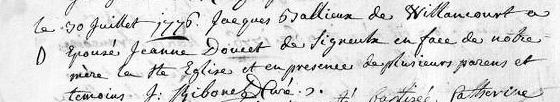 le 30 Juillet 1776. Jacques Hallieux de Willancourt a
Epousé Jeanne Doucet de Signeulx en face de notre
mère la Ste Eglise et en presence de plusieurs parens et
temoins J: Ribonet Curé.
Baptisée Catherine